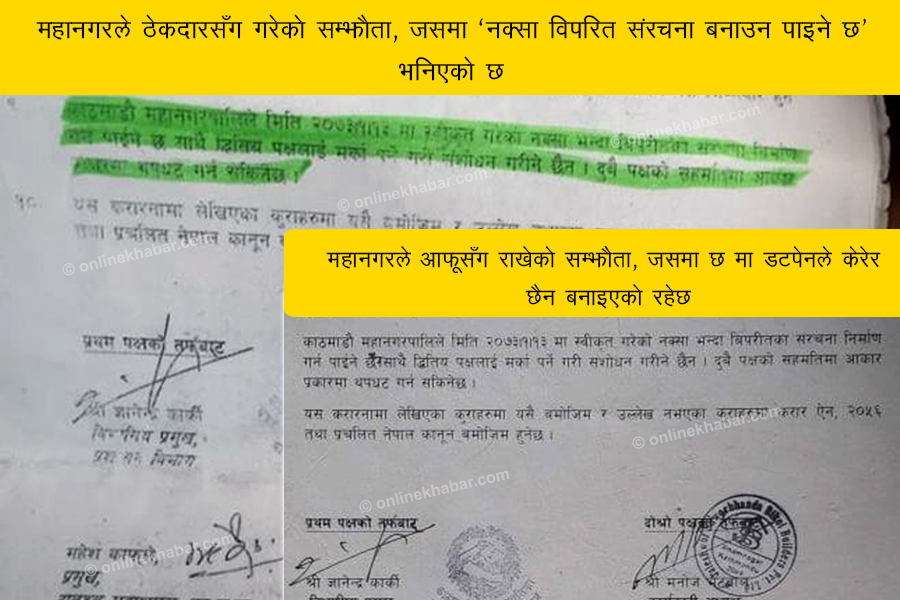 महानगरले ठेकदारसँग गरेको सम्झौता, जसमा ‘नक्सा विपरित संरचना बनाउन पाइने छ’
भनिएको छ
काठमाडौ महानगरपालिले मिति २०७३।१।१३ मा स्वीकृत गरेको नक्सा भन्दा बिपरीतका संरचना निर्माण
गर्न पाईने छ साथै द्धितिय पक्षलाई मर्का पर्ने गरी संशोधन गरीने छैन । दुबै पक्षको सहमतिमा आकार
प्रकारमा थपघट गर्न सकिनेछ ।
१८. यस करारनामा लेखिएका कुराहरुमा यसै बमोजिम र उल्लेख
तथा प्रचलित नेपाल कानून
प्रथम पक्षको तर्फबाट
श्री ज्ञानेन्द्र कार्की
विभागिय प्रमुख,
महेश काफ्ले
प्रमुख,
महानगरले आफूसँग राखेको सम्झौता, जसमा छ मा डटपेनले केरेर
छैन बनाइएको रहेछ
काठमाडौ महानगरपालिले मिति २०७३।१।१३ मा स्वीकृत गरेको नक्सा भन्दा बिपरीतका संरचना निर्माण
गर्न पाईने साथै द्धितिय पक्षलाई मर्का पर्ने गरी संशोधन गरीने छैन । दुबै पक्षको सहमतिमा आकार
प्रकारमा थपघट गर्न सकिनेछ ।
यस करारनामा लेखिएका कुराहरुमा यसै बमोजिम र उल्लेख नभएका कुराहरुमा करार ऐन, २०५६
तथा प्रचलित नेपाल कानून बमोजिम हुनेछ ।
प्रथम पक्षको तर्फबाट
दोश्रो पक्षको तर्फबाट
श्री ज्ञानेन्द्र कार्की
श्री मनोज
© onlinekhabar.com
© onlinekhabar.com
© onlinekhabar.com
© onlinekhabar.com
© onlinekhabar.com
© onlinekhabar.com